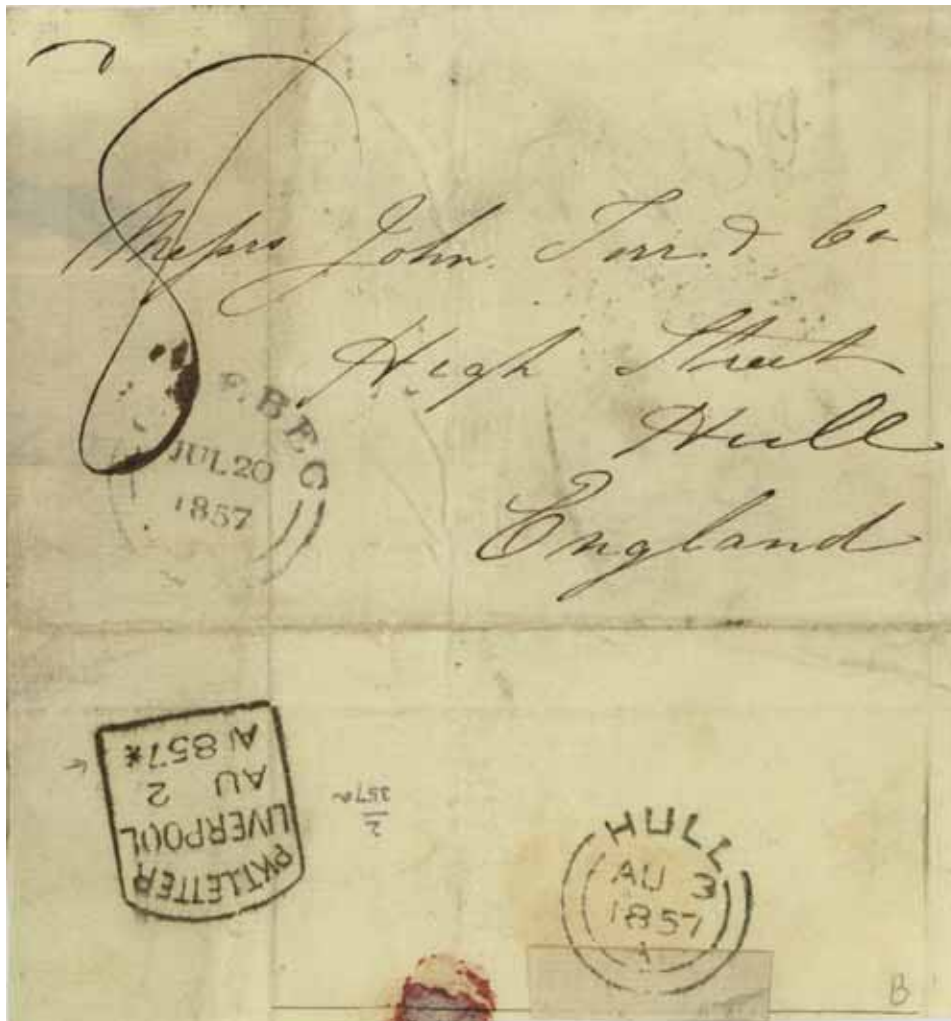 8
Messrs John Torr & Co
High Street
Hull
England
EBEC
JUL 20
1857
PKT. LETTER
LIVERPOOL
AU 2
A 1857*
HULL
AU 3
1857
A
B